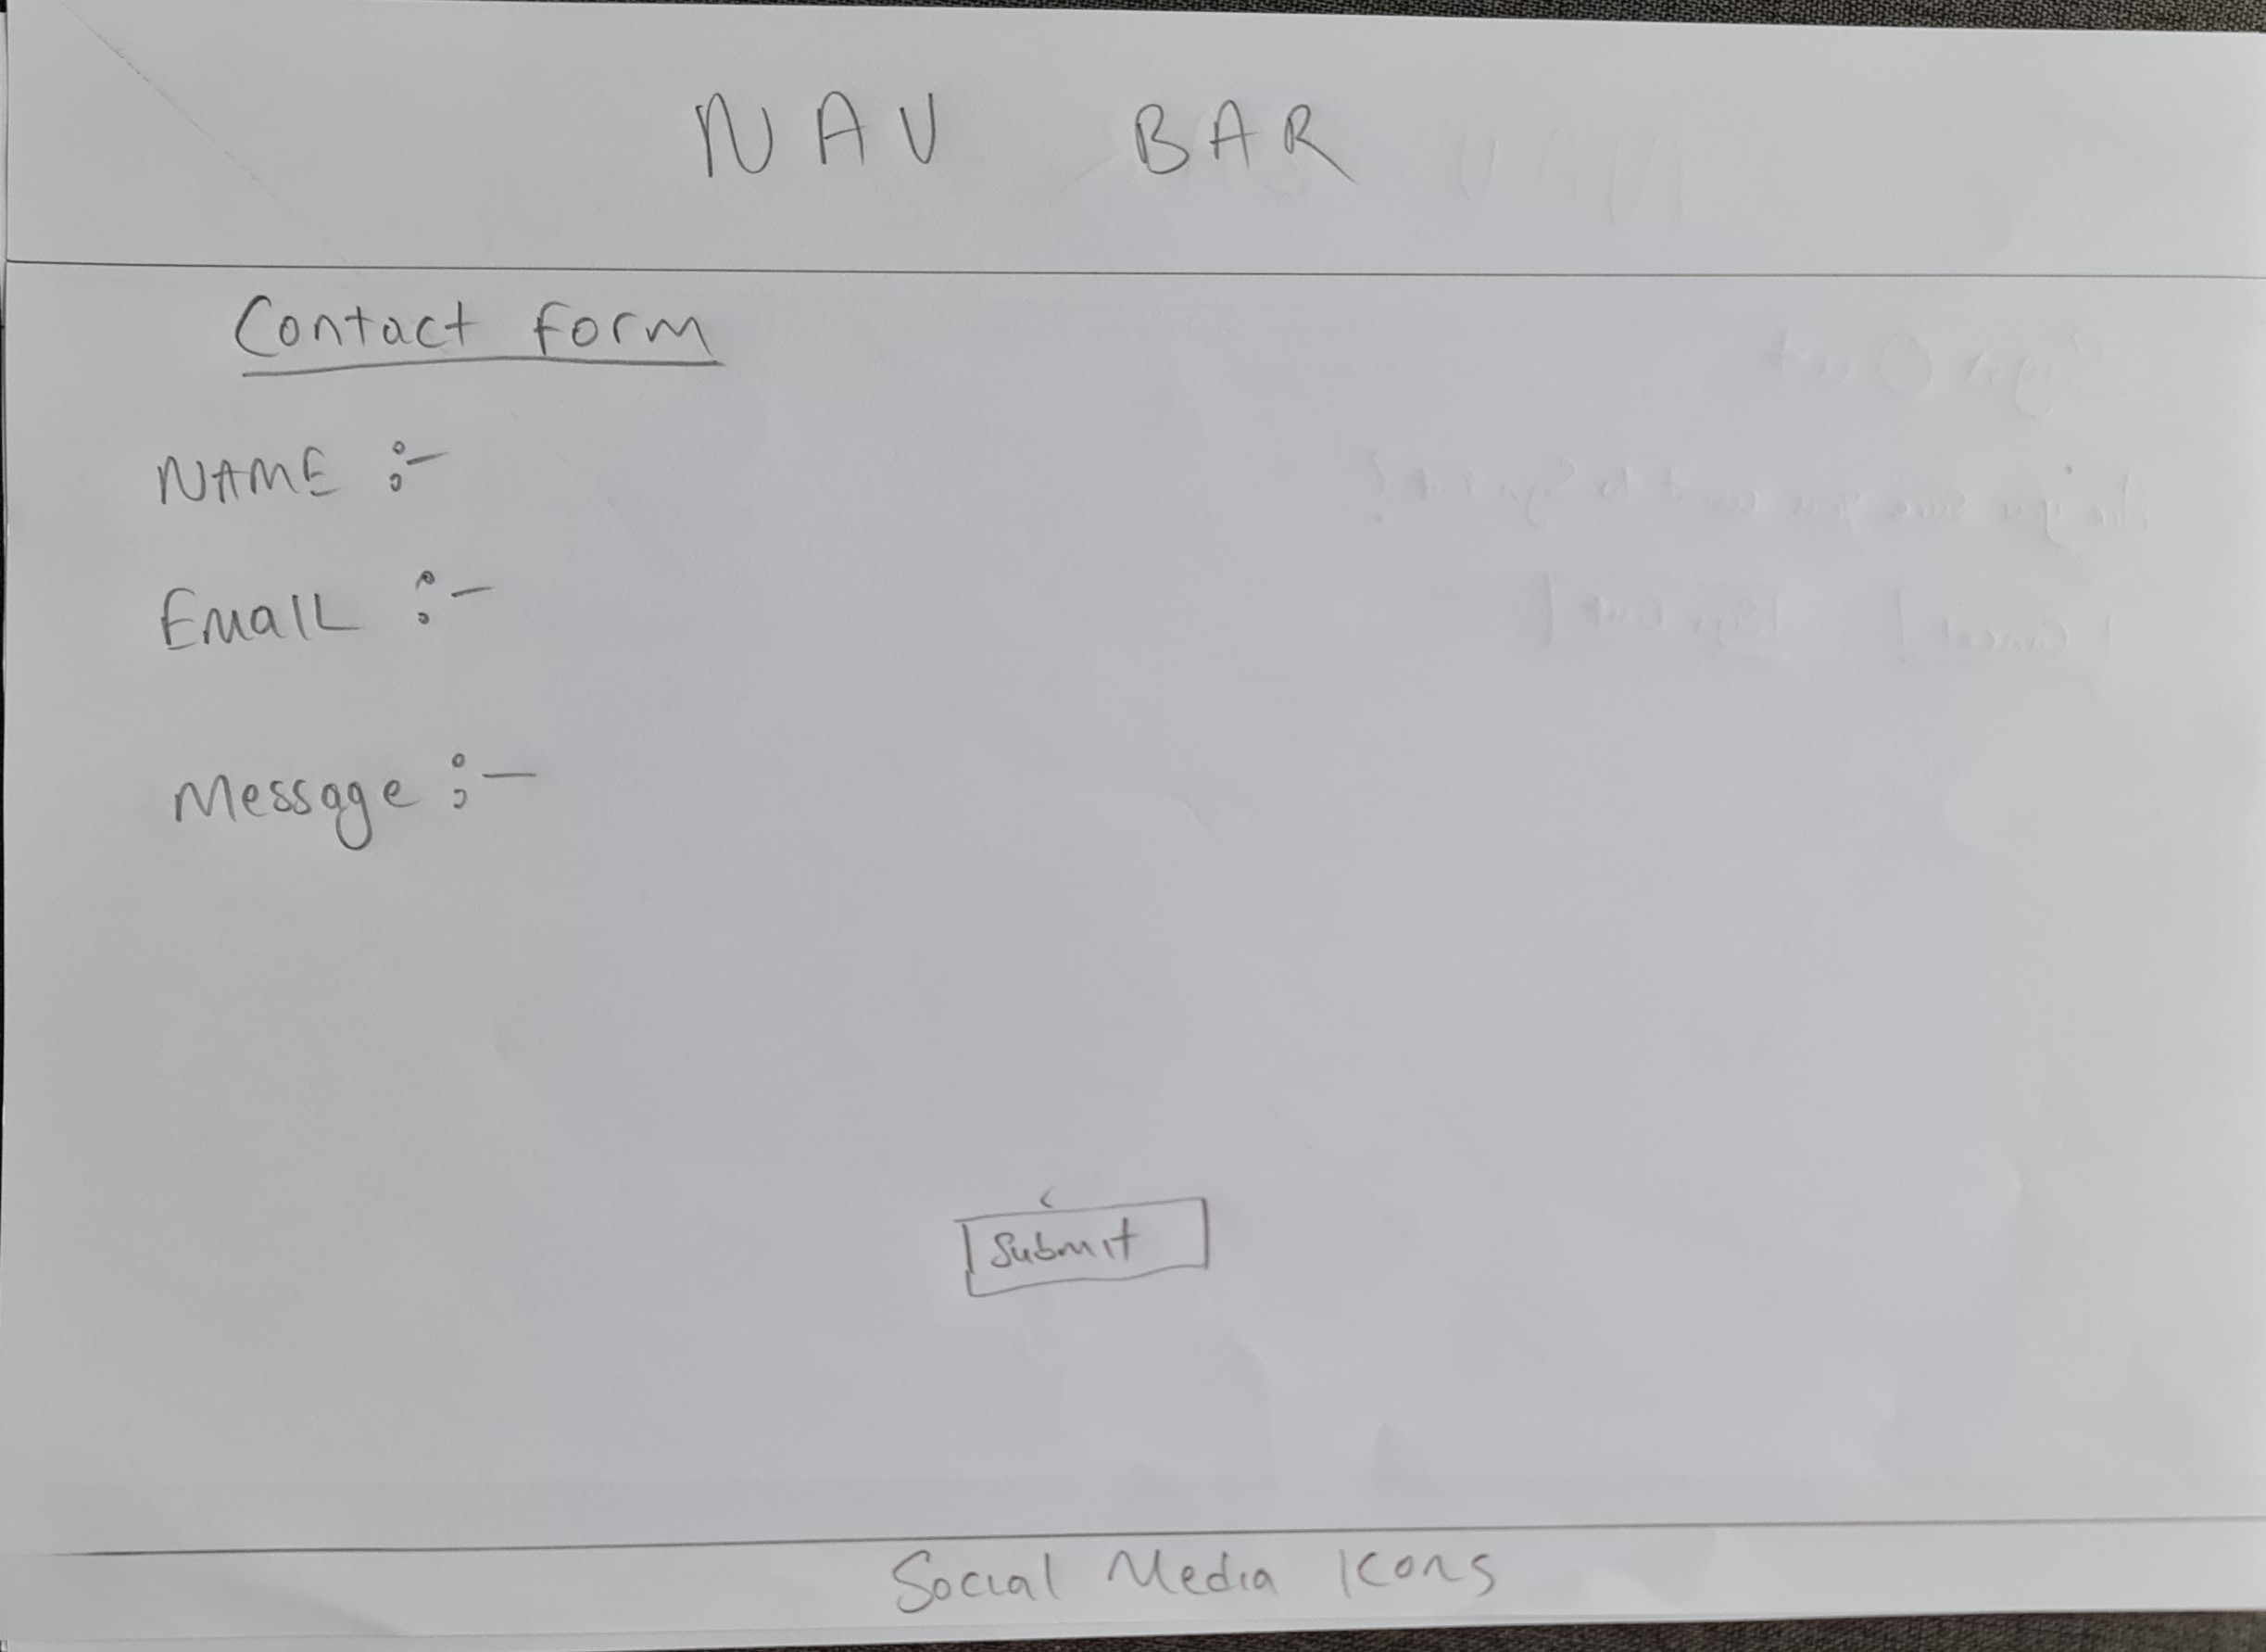 NAV BAR
Contact form
NAME :-
EmaIL :-
Message :-
Submit
Social Media Icons